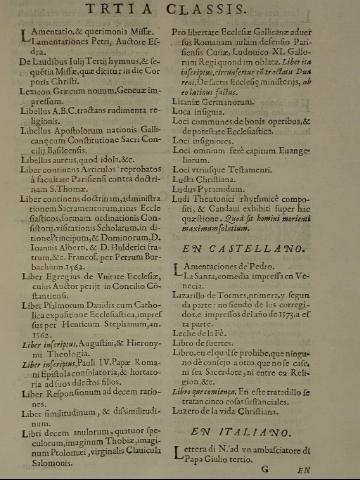 TRTIA CLASSIS.
LAmentatio, & querimonia Missæ.
Lamentationes Petri, Auctore Es-
dra.
De Laudibus Iulij Tertij hymnus, & se-
quētia Missæ, quæ dicitur in die Cor
poris Christi.
Lexicon Græcum nouum, Geneuæ im-
pressum.
Libellus A.B.C. tractans rudimenta re-
ligionis.
Libellus Apostolorum nationis Galli
canę cum Constitutione Sacri Con-
cilij Basileensis.
Libellus aureus, quod idola, &c.
Liber continens Articulos reprobatos
à facultate Parisiensi contra doctri-
nam S. Thomæ.
Liber continens doctrinam, administra
tionem Sacramentorum, ritus Eccle
siasticos, formam ordinationis Con-
sistorij, visitationis Scholarum, in di-
tione Principum, & Dominorum, D.
Ioannis Alberti, & D. Hulderici fra-
trum, &c. Francof, per Petrum Bur-
bachium. 1562.
Liber Egregius de Vnitate Ecclesiæ,
cuius Auctor perijt in Concilio Cō-
stantiensi.
Liber Psalmorum Dauidis cum Catho-
lica expositione Ecclesiastica, impres
sus per Henricum Stephanum, an.
1562.
Liber inscriptus, Augustini, & Hierony-
mi Theologia.
Liber inscriptus, Pauli IV. Papæ Roma-
ni Epistola consolatoria, & hortato-
ria ad suos dilectos filios.
Liber Responsionum ad decem ratio-
nes.
Liber similitudinum, & dissimilitudi-
num.
Libri decem anulorum, quatuor spe-
culorum, imaginum Thobiæ, imagi-
num Ptolomæi, virginalis Clauicula
Salomonis.
Pro libertate Ecclesiæ Gallicanæ aduer
sus Romanam aulam defensio Pari-
siensis Curiæ, Ludouico XI. Gallo-
rum Regi quondam oblata. Liber ita
inscriptus, circunfertur cū tractatu Dua
reni, De sacris Ecclesię ministerijs, ab
eo latinus factus.
Litaniæ Germanorum.
Loca insignia.
Loci communes de bonis operibus, &
de potestate Ecclesiastica.
Loci insigniores.
Loci omnium ferè capitum Euange-
liorum.
Loci vtriusque Testamenti.
Lusta Christiana.
Ludus Pyramidum.
Ludi Theotonici rhysmicè compo-
siti, & Gandaui exhibiti super hac
quæstione. Quod sit homini morienti
maximum solatium.
EN CASTELLANO.
LAmentaciones de Pedro.
La Santa, comedia impressa en Ve-
necia.
Lazarillo de Tormes, primera, y segun
da parte: no siendo de los corregi-
dos, e impressos del año de 1573. a es
ta parte.
Leche de la Fè.
Libro de suertes.
Libro, en el qual se prohibe, que ningu-
no dè consejo a otro, que no se case,
ni sea Sacerdote, ni entre en Reli-
gion, &c.
Libro que comiença, En este tratadillo se
tratan cinco cosas sustanciales.
Luzero de la vida Christiana.
EN ITALIANO.
LEttera di N. ad vn ambasciatore di
Papa Giulio tertio.
G EN